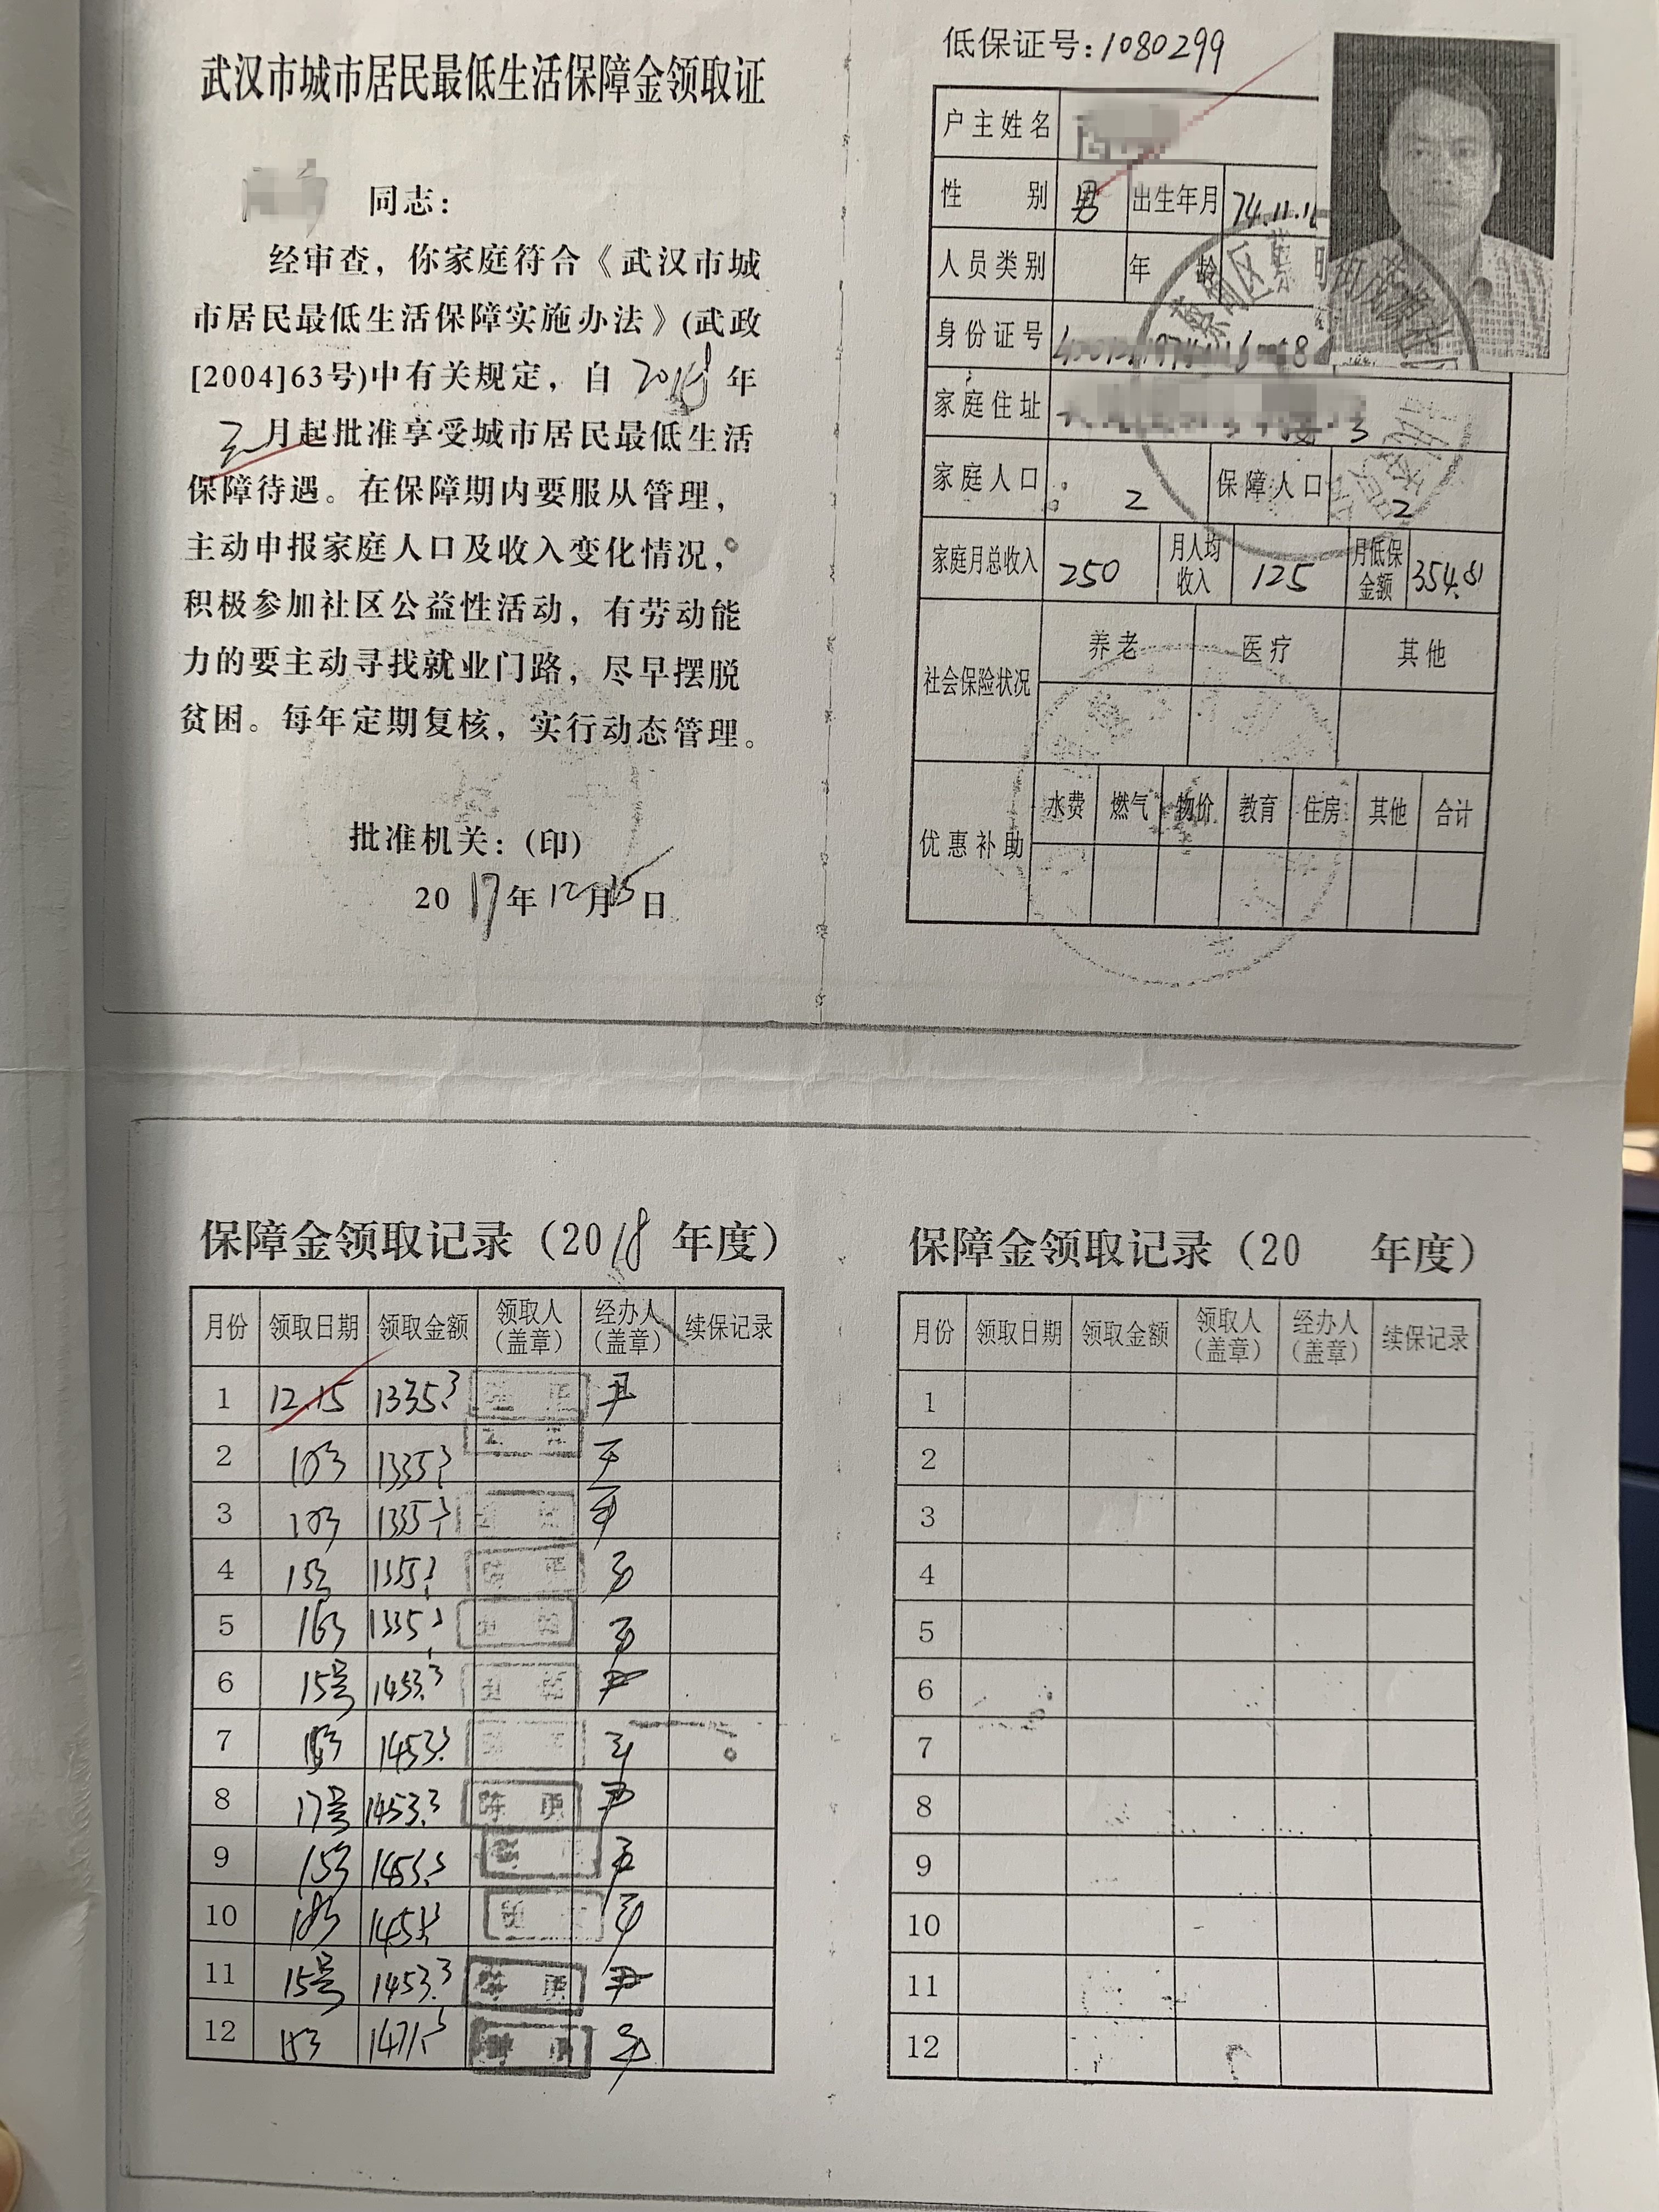 武汉市城市居民最低生活保障金领取证
同志：
经审查，你家庭符合《武汉市城
市居民最低生活保障实施办法》(武政
[2004]63号)中有关规定，自 2018 年
月起批准享受城市居民最低生活
保障待遇。在保障期内要服从管理，
主动申报家庭人口及收入变化情况，
积极参加社区公益性活动，有劳动能
力的要主动寻找就业门路，尽早摆脱
贫困。每年定期复核，实行动态管理。
批准机关：(印)
2017年12月15日
低保证号：1080299
户主姓名
性别 男 出生年月 74.11.16
人员类别 年龄
身份证号
家庭住址
家庭人口 2 保障人口 2
家庭月总收入 250 月人均收入 125 月低保金额 354.81
社会保险状况 养老 医疗 其他
优惠补助 水费 燃气 物价 教育 住房 其他 合计
保障金领取记录（2018年度）
月份 领取日期 领取金额 领取人（盖章） 经办人（盖章） 续保记录
1 12.15 1335.3
2 10号 1335.3
3 10号 1335.3
4 15号 1335.3
5 16号 1335.3
6 15号 1453.3
7 1453.3
8 17号 1453.3 陈勇
9 15号 1453.3
10 18号 1453.3
11 15号 1453.3
12 15号 1471.3
保障金领取记录（20 年度）
月份 领取日期 领取金额 领取人（盖章） 经办人（盖章） 续保记录
1
2
3
4
5
6
7
8
9
10
11
12